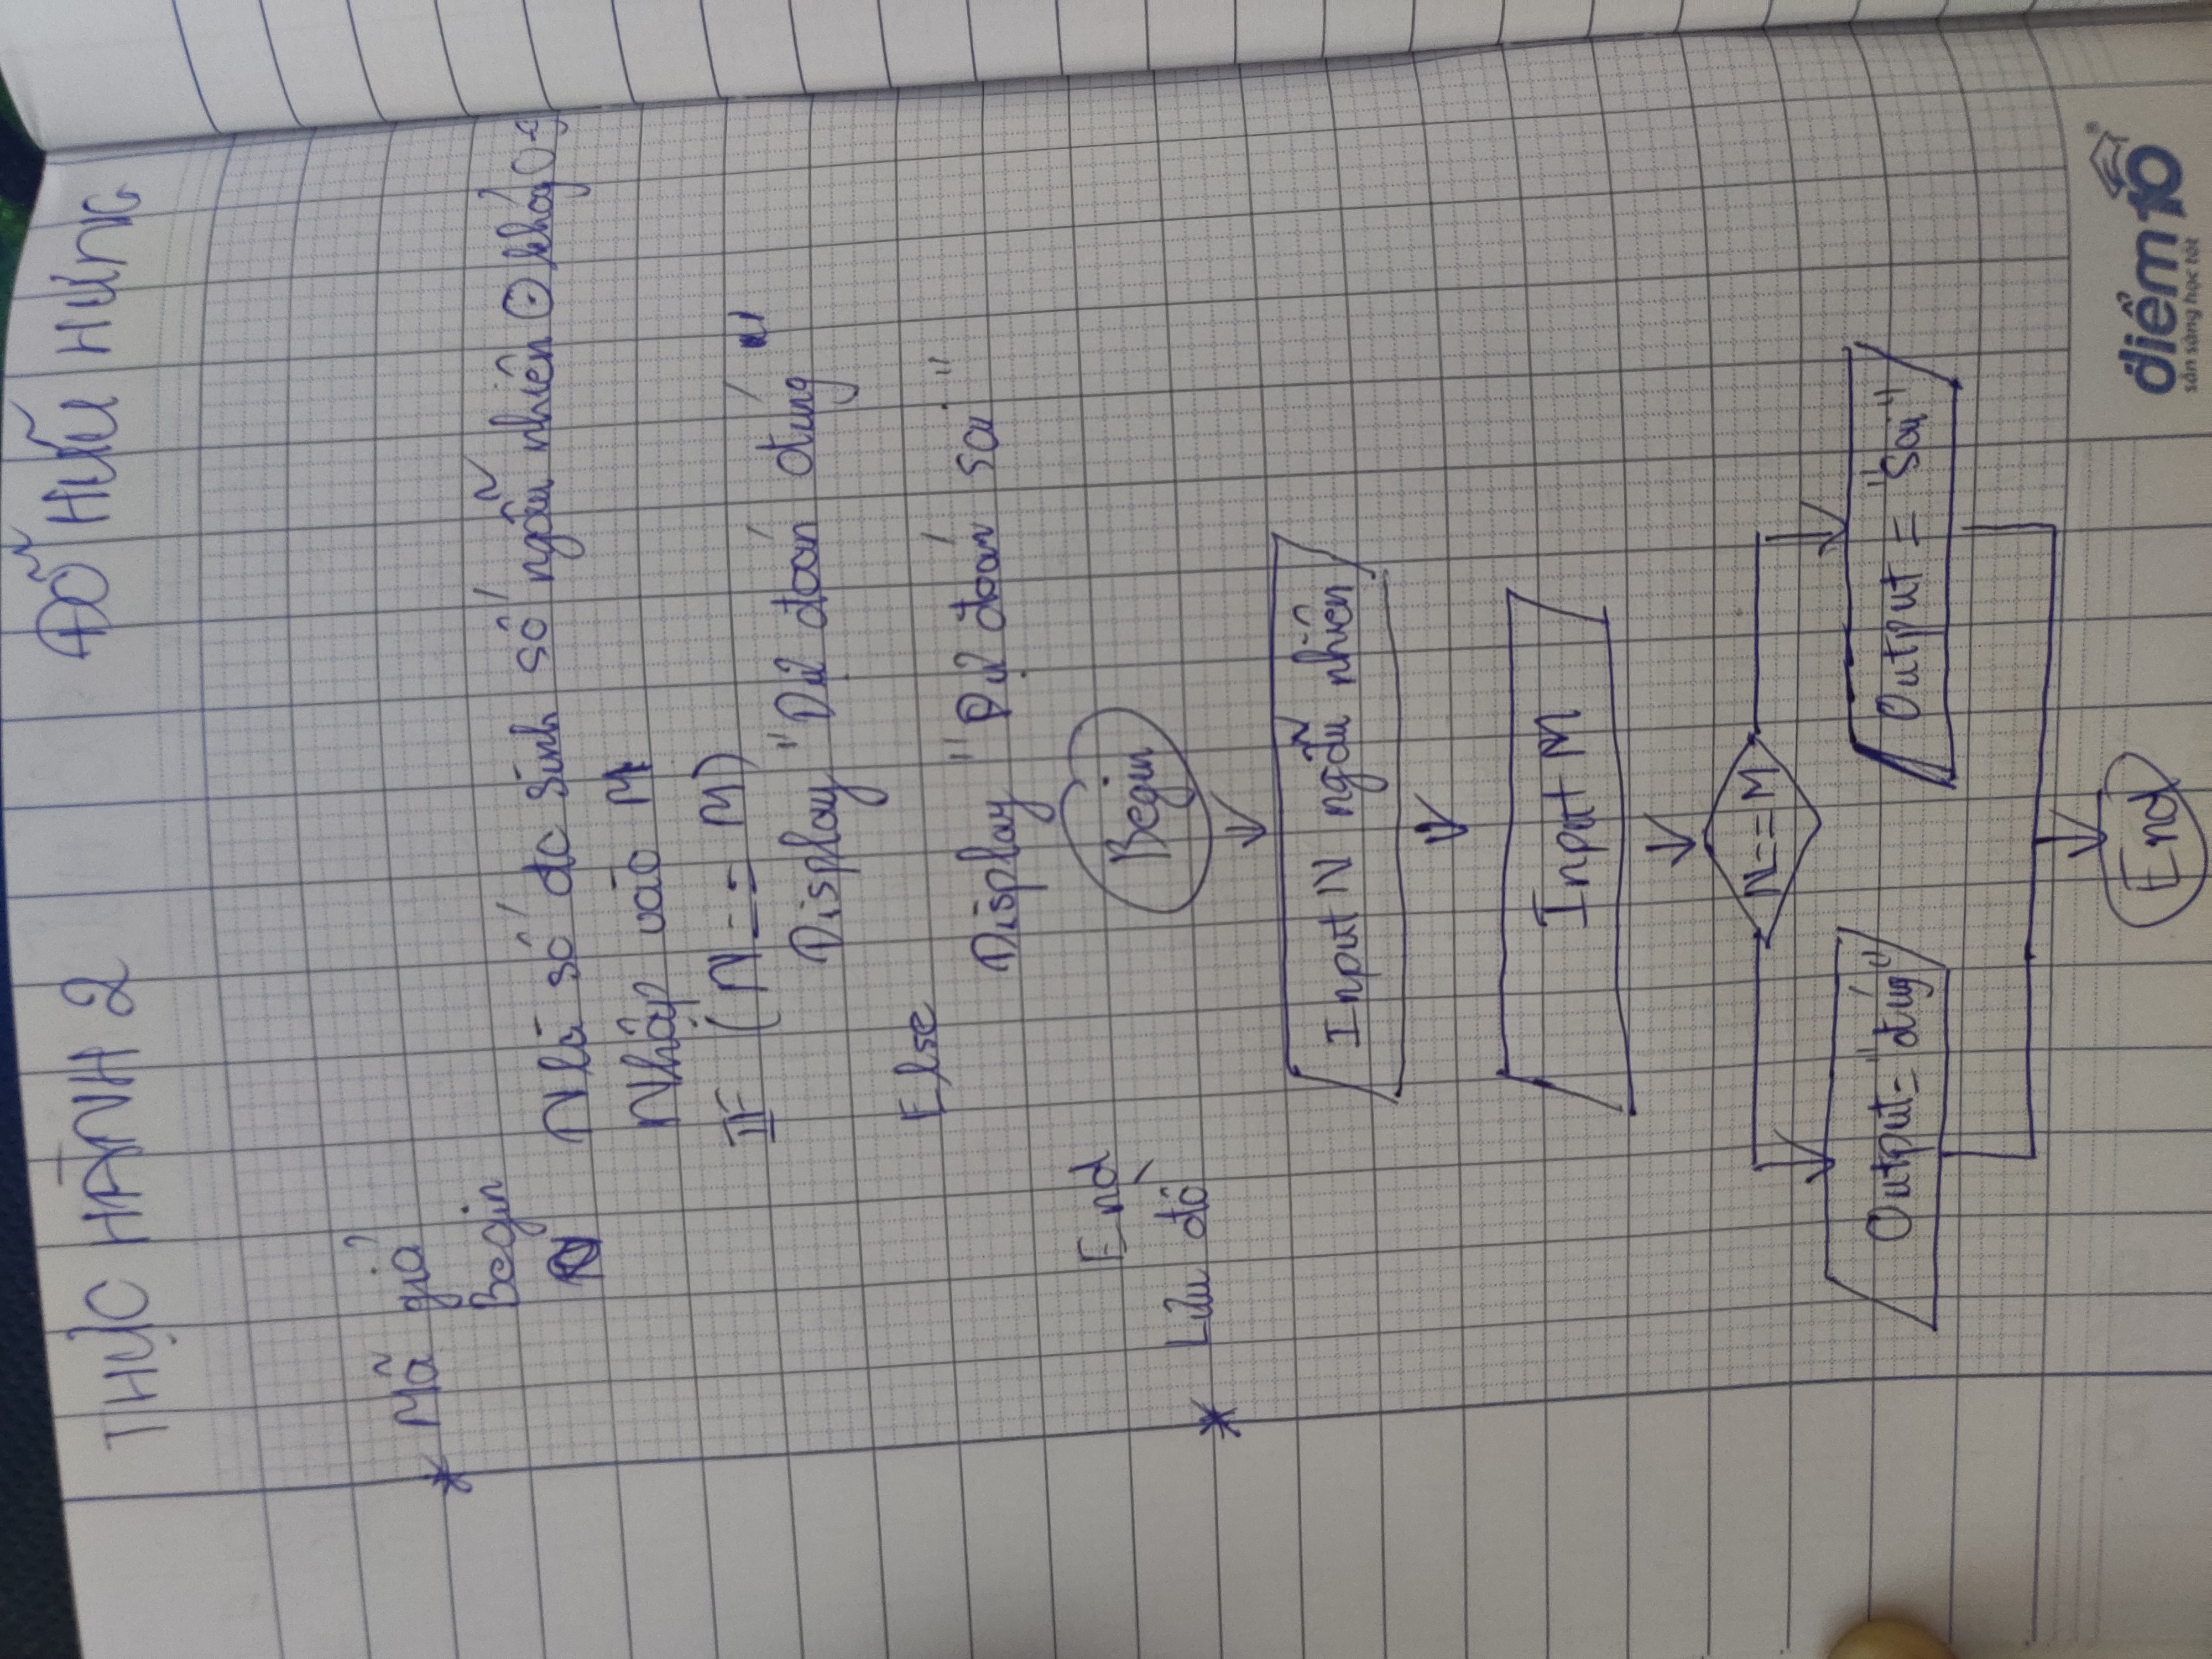 THỰC HÀNH 2 ĐỖ HỮU HƯNG
* Mã giả
Begin
N là số đc sinh số ngẫu nhiên 0-9
Nhập vào M
IF (N == M)
Display "Dự đoán đúng"
Else
Display "Dự đoán sai"
End
* Lưu đồ
Begin
Input N ngẫu nhiên
Input M
N==M
Output="đúg"
Output = "Sai"
End
điểm10
sẵn sàng học tốt